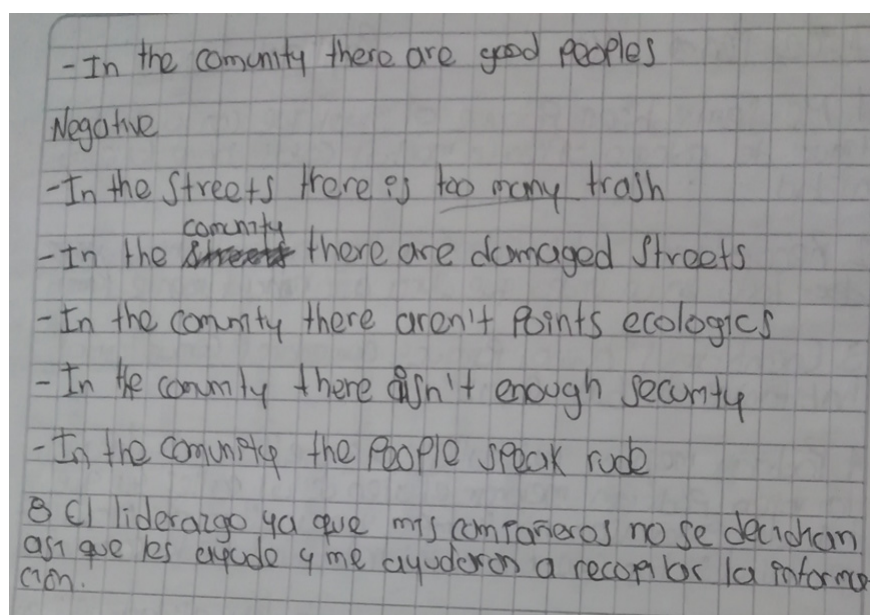 - In the comunity there are good peoples
Negative
- In the streets there is too many trash
comunity
- In the streets there are damaged streets
- In the comunity there aren't points ecologics
- In the comunity there isn't enough security
- In the comunity the people speak rude
8 El liderazgo ya que mis compañeros no se decidian
asi que les ayude y me ayudaron a recopilar la informa
ción.